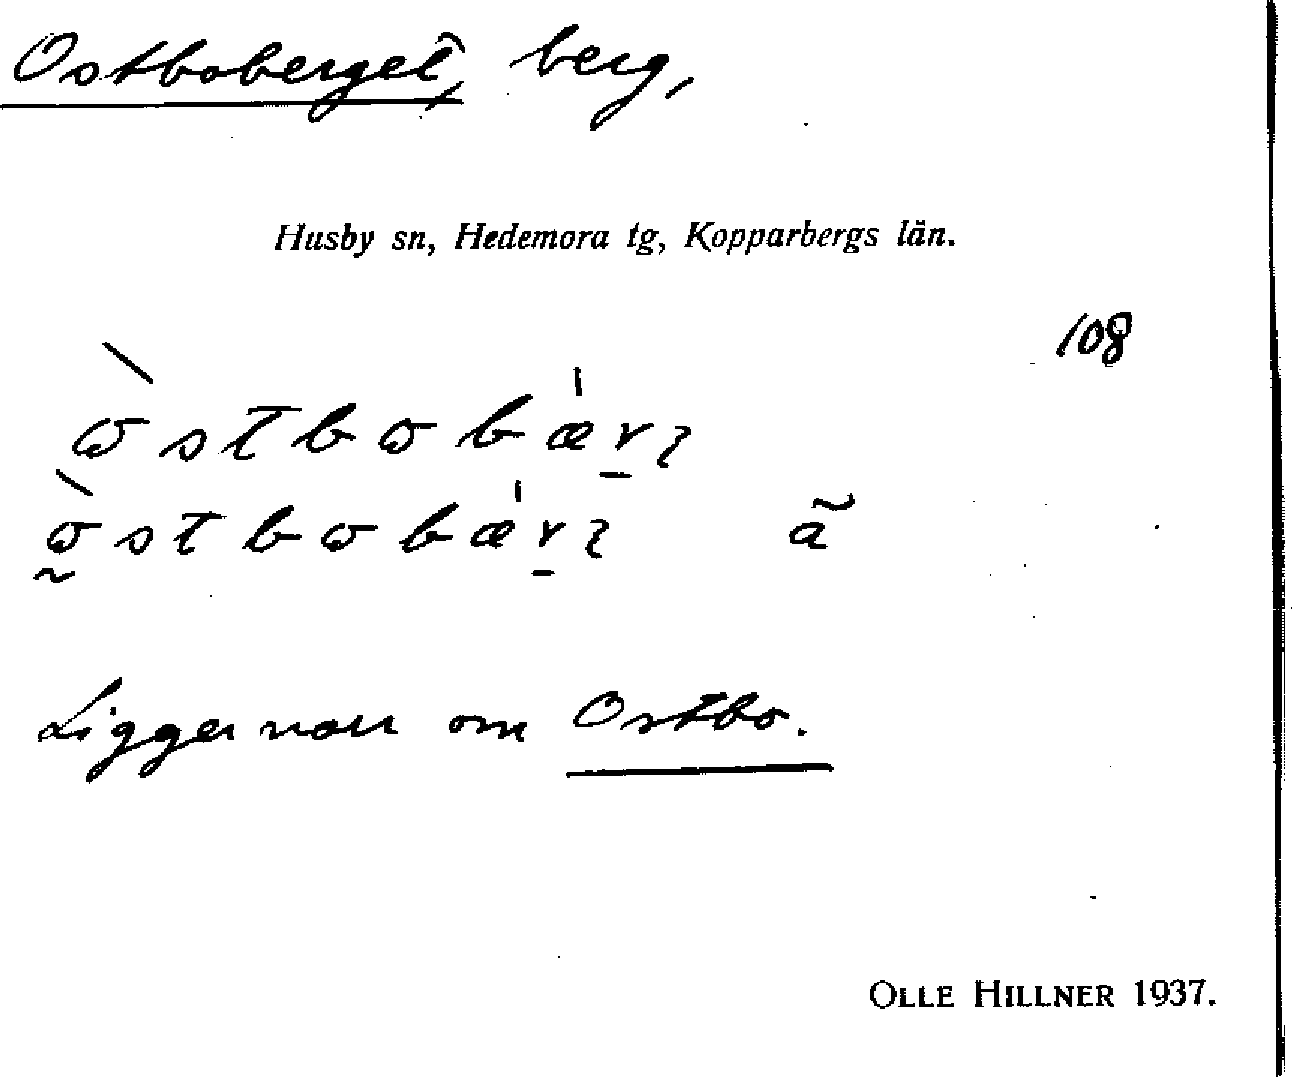 Ostboberget, berg,
Husby sn, Hedemora tg, Kopparbergs län.
108
Ligger norr om Ostbo.
OLLE HILLNER 1937.